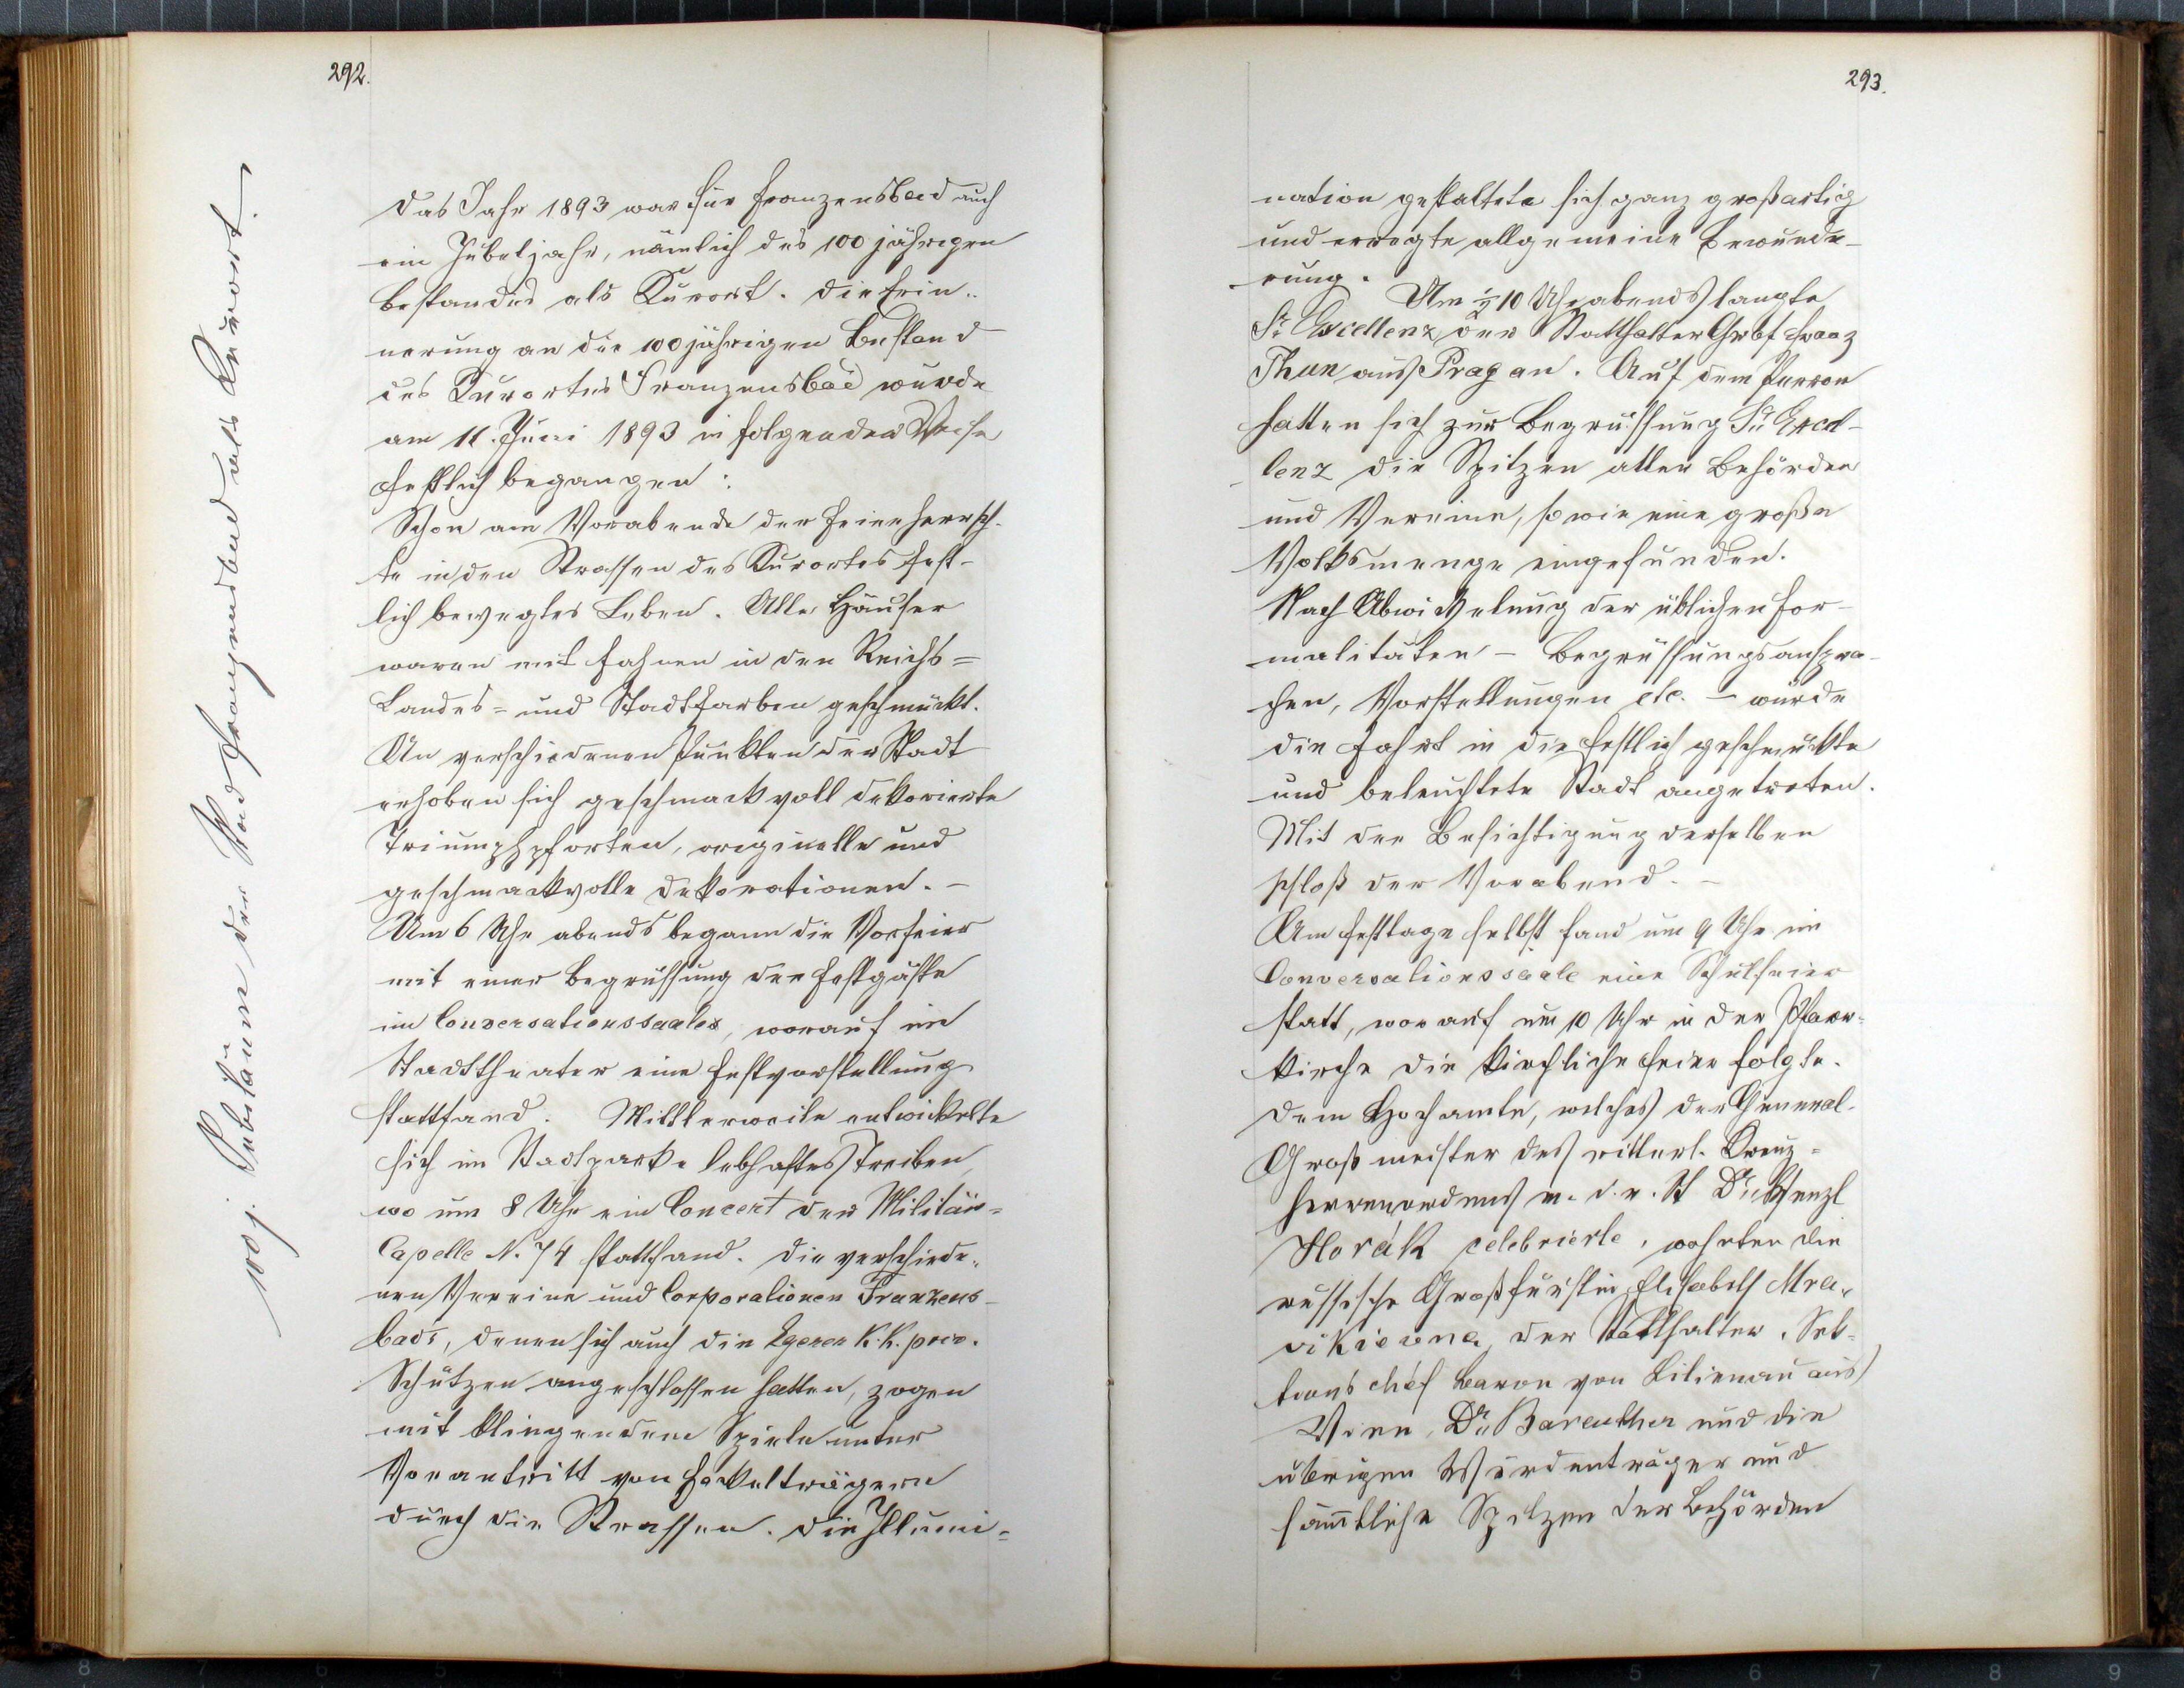 292.
100 j. Jubiläum der Stadt Franzensbad als Kurort.
Das Jahr 1893 war für Franzensbad auch
ein Jubeljahr, nämlich des 100 jährigen
Bestandes als Kurort. Die Erin-
nerung an die 100 jährigen Bestand
des Kurortes Franzensbad wurde
am 11. Juni 1893 in folgender Weise
festlich begangen:
Schon am Vorabende der Feier herrsch-
te in den Strassen des Kurortes fest-
lich bewegtes Leben. Alle Häuser
waren mit Fahnen in den Reichs=
Landes= und Stadtfarben geschmückt.
An verschiedenen Punkten der Stadt
erhoben sich geschmackvoll dekorierte
Triumphpforten, originelle und
geschmackvolle Dekorationen. –
Um 6 Uhr abends begann die Vorfeier
mit einer Begrüssung der Festgäste
im Conversationssaales, worauf im
Stadttheater eine Festvorstellung
stattfand. Mittlerweile entwickelte
sich im Stadtparke lebhaftes Treiben,
wo um 8 Uhr ein Concert der Militär=
Capelle N. 74 stattfand. Die verschiede-
nen Vereine und Corporationen Franzens-
bads, denen sich auch die Egerer k.k. priv.
Schützen angeschlossen hatten, zogen
mit klingendem Spiele unter
Vorantritt von Fackelträgern
durch die Strassen. Die Illumi=
293.
nation gestaltete sich ganz großartig
und erregte allgemeine Bewunde-
rung.
Um ½ 10 Uhr abends langte
Sr. Excellenz der Statthalter Graf Franz
Thun aus Prag an. Auf dem Perron
hatten sich zur Begrüssung Sr. Excel-
lenz die Spitzen aller Behörden
und Vereine, sowie eine große
Volksmenge eingefunden.
Nach Abwickelung der üblichen For-
malitäten – Begrüssungsanspra-
chen, Vorstellungen etc. – wurde
die Fahrt in die festlich geschmückte
und beleuchtete Stadt angetreten.
Mit der Besichtigung derselben
schloß der Vorabend. –
Am Festtage selbst fand um 9 Uhr im
Conversationssaale eine Schulfeier
statt, worauf um 10 Uhr in der Pfarr-
kirche die kirchliche Feier folgte.
Dem Hochamte, welches der General-
Grossmeister des ritterl. Kreuz=
herrenordens m. d. r. St. Dr. Wenzl
Horák celebrierte, wohnten die
russische Großfürstin Elisabeth
der Statthalter, Sek-
tions chéf Baron von Lilienau aus
Wien, Dr. Bareuther und die
übrigen Würdenträger und
sämmtliche Spitzen der Behörden